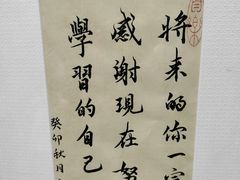 將来的你一定
感謝現在努
學習的自己
癸卯秋月